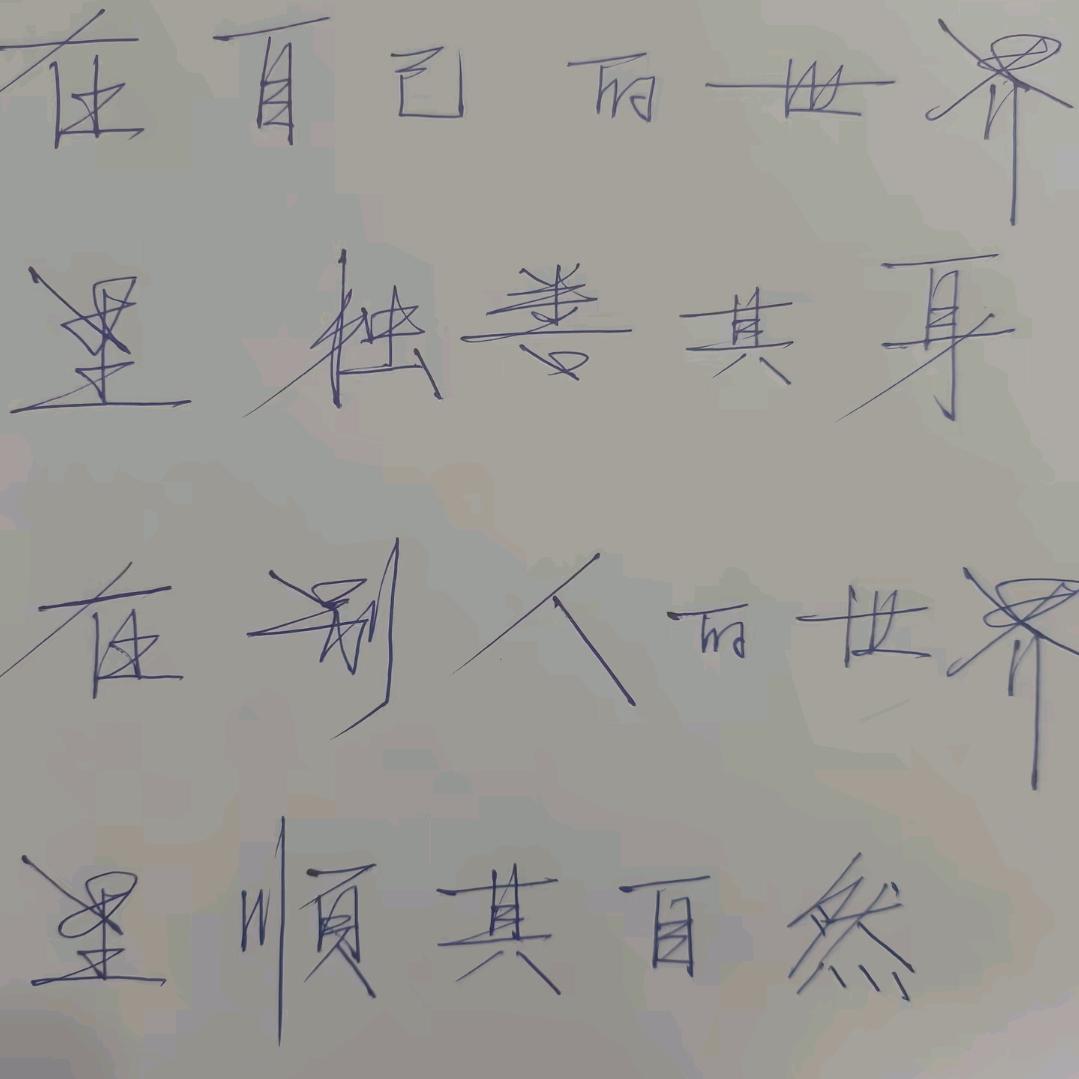 在自己的世界
里独善其身
在别人的世界
里顺其自然